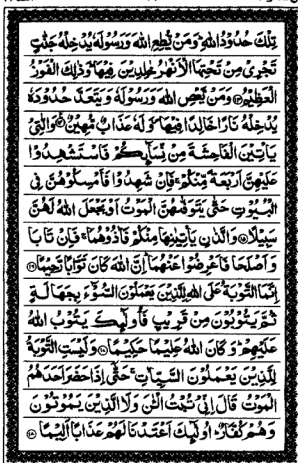 تِلْكَ حُدُودُ اللّٰهِ ؕ وَمَنْ يُّطِعِ اللّٰهَ وَرَسُولَهٗ يُدْخِلْهُ جَنّٰتٍ
تَجْرِى مِنْ تَحْتِهَا الْاَنْهٰرُ خٰلِدِينَ فِيهَا ؕ وَذٰلِكَ الْفَوْزُ
الْعَظِيمُ ﴿۱۳﴾ وَمَنْ يَّعْصِ اللّٰهَ وَرَسُولَهٗ وَيَتَعَدَّ حُدُودَهٗ
يُدْخِلْهُ نَارًا خَالِدًا فِيهَا ۪ وَلَهٗ عَذَابٌ مُّهِينٌ ﴿۱۴﴾ وَالّٰتِى
يَاْتِينَ الْفَاحِشَةَ مِنْ نِّسَآئِكُمْ فَاسْتَشْهِدُوا
عَلَيْهِنَّ اَرْبَعَةً مِّنْكُمْ ۚ فَاِنْ شَهِدُوا فَاَمْسِكُوهُنَّ فِى
الْبُيُوتِ حَتّٰى يَتَوَفّٰهُنَّ الْمَوْتُ اَوْ يَجْعَلَ اللّٰهُ لَهُنَّ
سَبِيلًا ﴿۱۵﴾ وَالَّذٰنِ يَاْتِيٰنِهَا مِنْكُمْ فَاٰذُوهُمَا ۚ فَاِنْ تَابَا
وَاَصْلَحَا فَاَعْرِضُوا عَنْهُمَا ؕ اِنَّ اللّٰهَ كَانَ تَوَّابًا رَّحِيمًا ﴿۱۶﴾
اِنَّمَا التَّوْبَةُ عَلَى اللّٰهِ لِلَّذِينَ يَعْمَلُونَ السُّوٓءَ بِجَهَالَةٍ
ثُمَّ يَتُوبُونَ مِنْ قَرِيبٍ فَاُولٰٓئِكَ يَتُوبُ اللّٰهُ
عَلَيْهِمْ ؕ وَكَانَ اللّٰهُ عَلِيمًا حَكِيمًا ﴿۱۷﴾ وَلَيْسَتِ التَّوْبَةُ
لِلَّذِينَ يَعْمَلُونَ السَّيِّاٰتِ ۚ حَتّٰٓى اِذَا حَضَرَ اَحَدَهُمُ
الْمَوْتُ قَالَ اِنِّى تُبْتُ الْـٰٔنَ وَلَا الَّذِينَ يَمُوتُونَ
وَهُمْ كُفَّارٌ ؕ اُولٰٓئِكَ اَعْتَدْنَا لَهُمْ عَذَابًا اَلِيمًا ﴿۱۸﴾